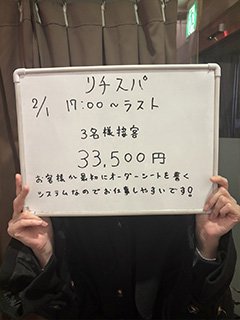 リチスパ
2/1 17:00～ラスト
3名様接客
33,500円
お客様が最初にオーダーシートを書く
システムなのでお仕事しやすいです!